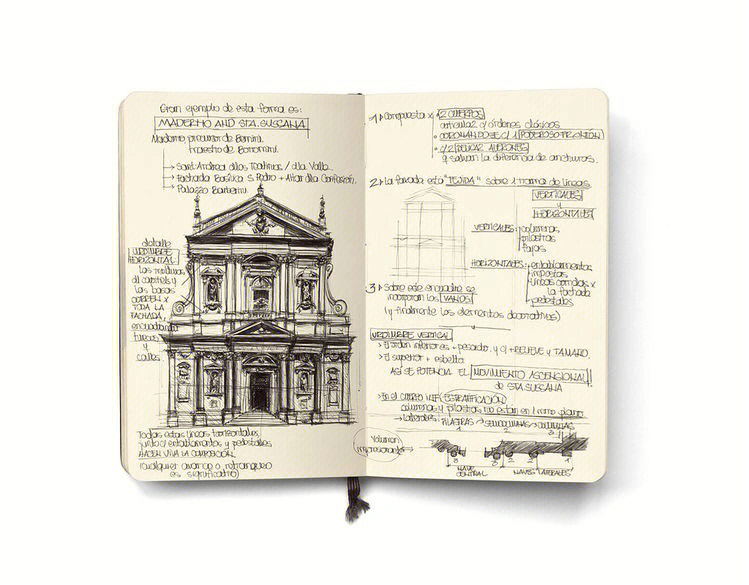 Gran ejemplo de esta forma es:
MADERNO AND STA. SUSANA
Maderno, precursor de Bernini.
maestro de Borromini.
→ Saint Andrea della / della Valle.
→ Fachada Basílica S. Pedro + Altar dlla Confesión.
→ Palazzo Barberini
detalle
URDIMBRE
HORIZONTAL
las molduras
d capiteles y
las basas
CORREN X
TODA LA
FACHADA,
encuadrando
y
calles
Todas estas líneas horizontales
junto c/ entablamentos y pedestales
HACEN VIVA LA COMPOSICIÓN.
Cualquier avance o retranqueo
es significativo
1 Compuesta x 2 CUERPOS
articula 2 y órdenes clásicos
CORONÁNDOSE C/ 1 PODEROSO FRONTÓN
c/ 2 ALERONES
y salvan la diferencia de anchuras.
2 La fachada está "TEJIDA" sobre 1 trama de líneas
VERTICALES
y
HORIZONTALES
VERTICALES: columnas
pilastras
fajas
HORIZONTALES: entablamentos
impostas
líneas corridas x
la fachada
pedestales
3 Sobre este encuadre se
incorporan los VANOS
(y finalmente los elementos decorativos)
URDIMBRE VERTICAL
El orden inferior es + pesado y c/ + RELIEVE Y TAMAÑO.
El superior + esbelto
ASÍ SE POTENCIA EL MOVIMIENTO ASCENSIONAL
de STA SUSANA
En el CUERPO INF (ESTRATIFICACIÓN)
columnas y pilastras no están en 1 mismo plano
laterales: PILASTRAS → SEMICOLUMNAS → COLUMNAS
1 2 3
Volumen
impresionante
3 3
NAVE
CENTRAL
3 2 1
NAVES "LATERALES"